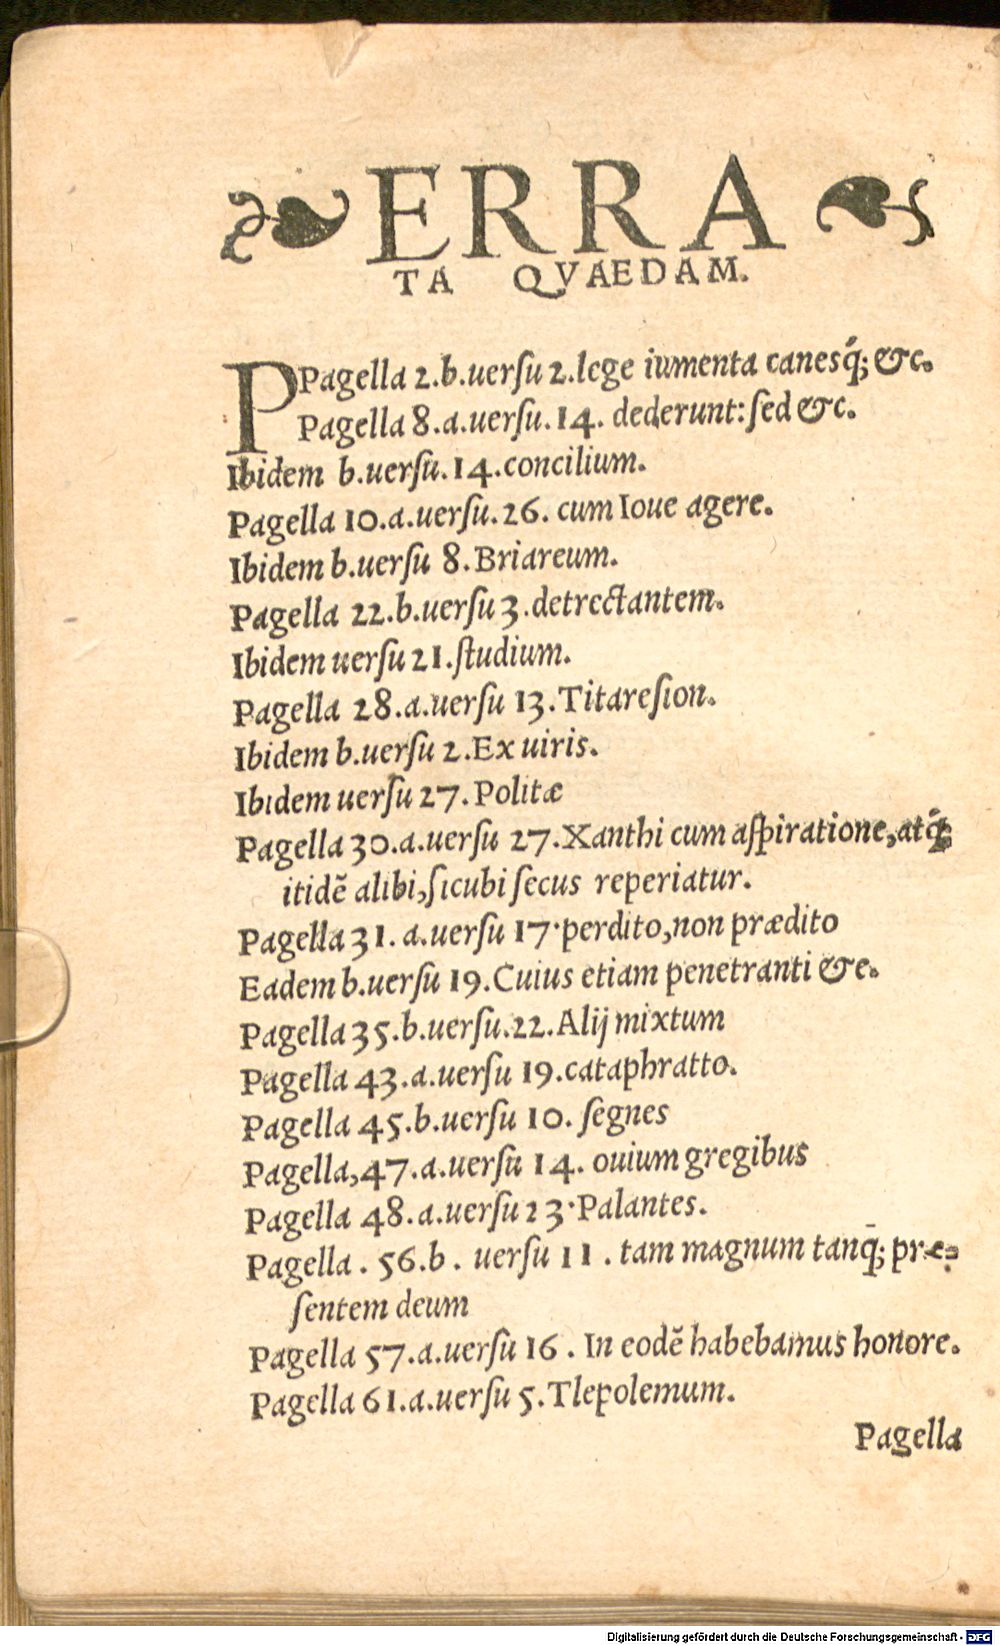 ❧ ERRA ☙
TA QVAEDAM.
PPagella 2.b.uerſu 2.lege iumenta canesq́;&c.
Pagella 8.a.uerſu.14. dederunt:ſed &c.
Ibidem b.uerſu.14.concilium.
Pagella 10.a.uerſu.26. cum Ioue agere.
Ibidem b.uerſu 8.Briareum.
Pagella 22.b.uerſu 3.detrectantem.
Ibidem uerſu 21.ſtudium.
Pagella 28.a.uerſu 13.Titareſion.
Ibidem b.uerſu 2.Ex uiris.
Ibidem uerſu 27.Politæ
Pagella 30.a.uerſu 27.Xanthi cum aſpiratione,atq́;
itidẽ alibi,ſicubi ſecus reperiatur.
Pagella 31. a.uerſu 17·perdito,non prædito
Eadem b.uerſu 19.Cuius etiam penetranti &c.
Pagella 35.b.uerſu.22.Alij mixtum
Pagella 43.a.uerſu 19.cataphratto.
Pagella 45.b.uerſu 10. ſegnes
Pagella,47.a.uerſu 14. ouium gregibus
Pagella 48.a.uerſu 23·Palantes.
Pagella . 56.b . uerſu 11 . tam magnum tanq̄; præ-
ſentem deum
Pagella 57.a.uerſu 16 . In eodẽ habebamus honore.
Pagella 61.a.uerſu 5.Tlepolemum.
Pagella
Digitalisierung gefördert durch die Deutsche Forschungsgemeinschaft - DFG